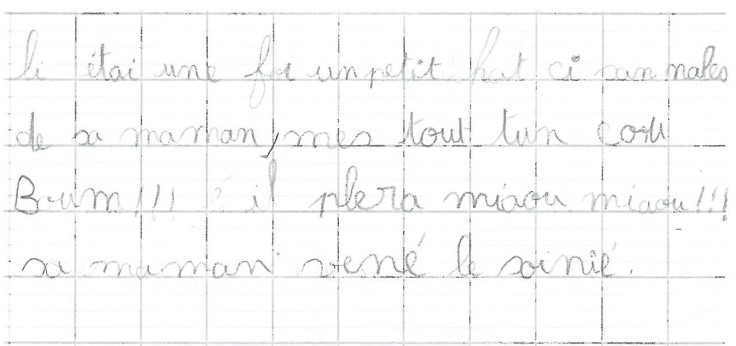 li étai une foi un petit hat ci san nales
de sa maman, mes tout tun cou
Boum!!! é il plera miaou miaou!!!
sa maman vené le soinié.